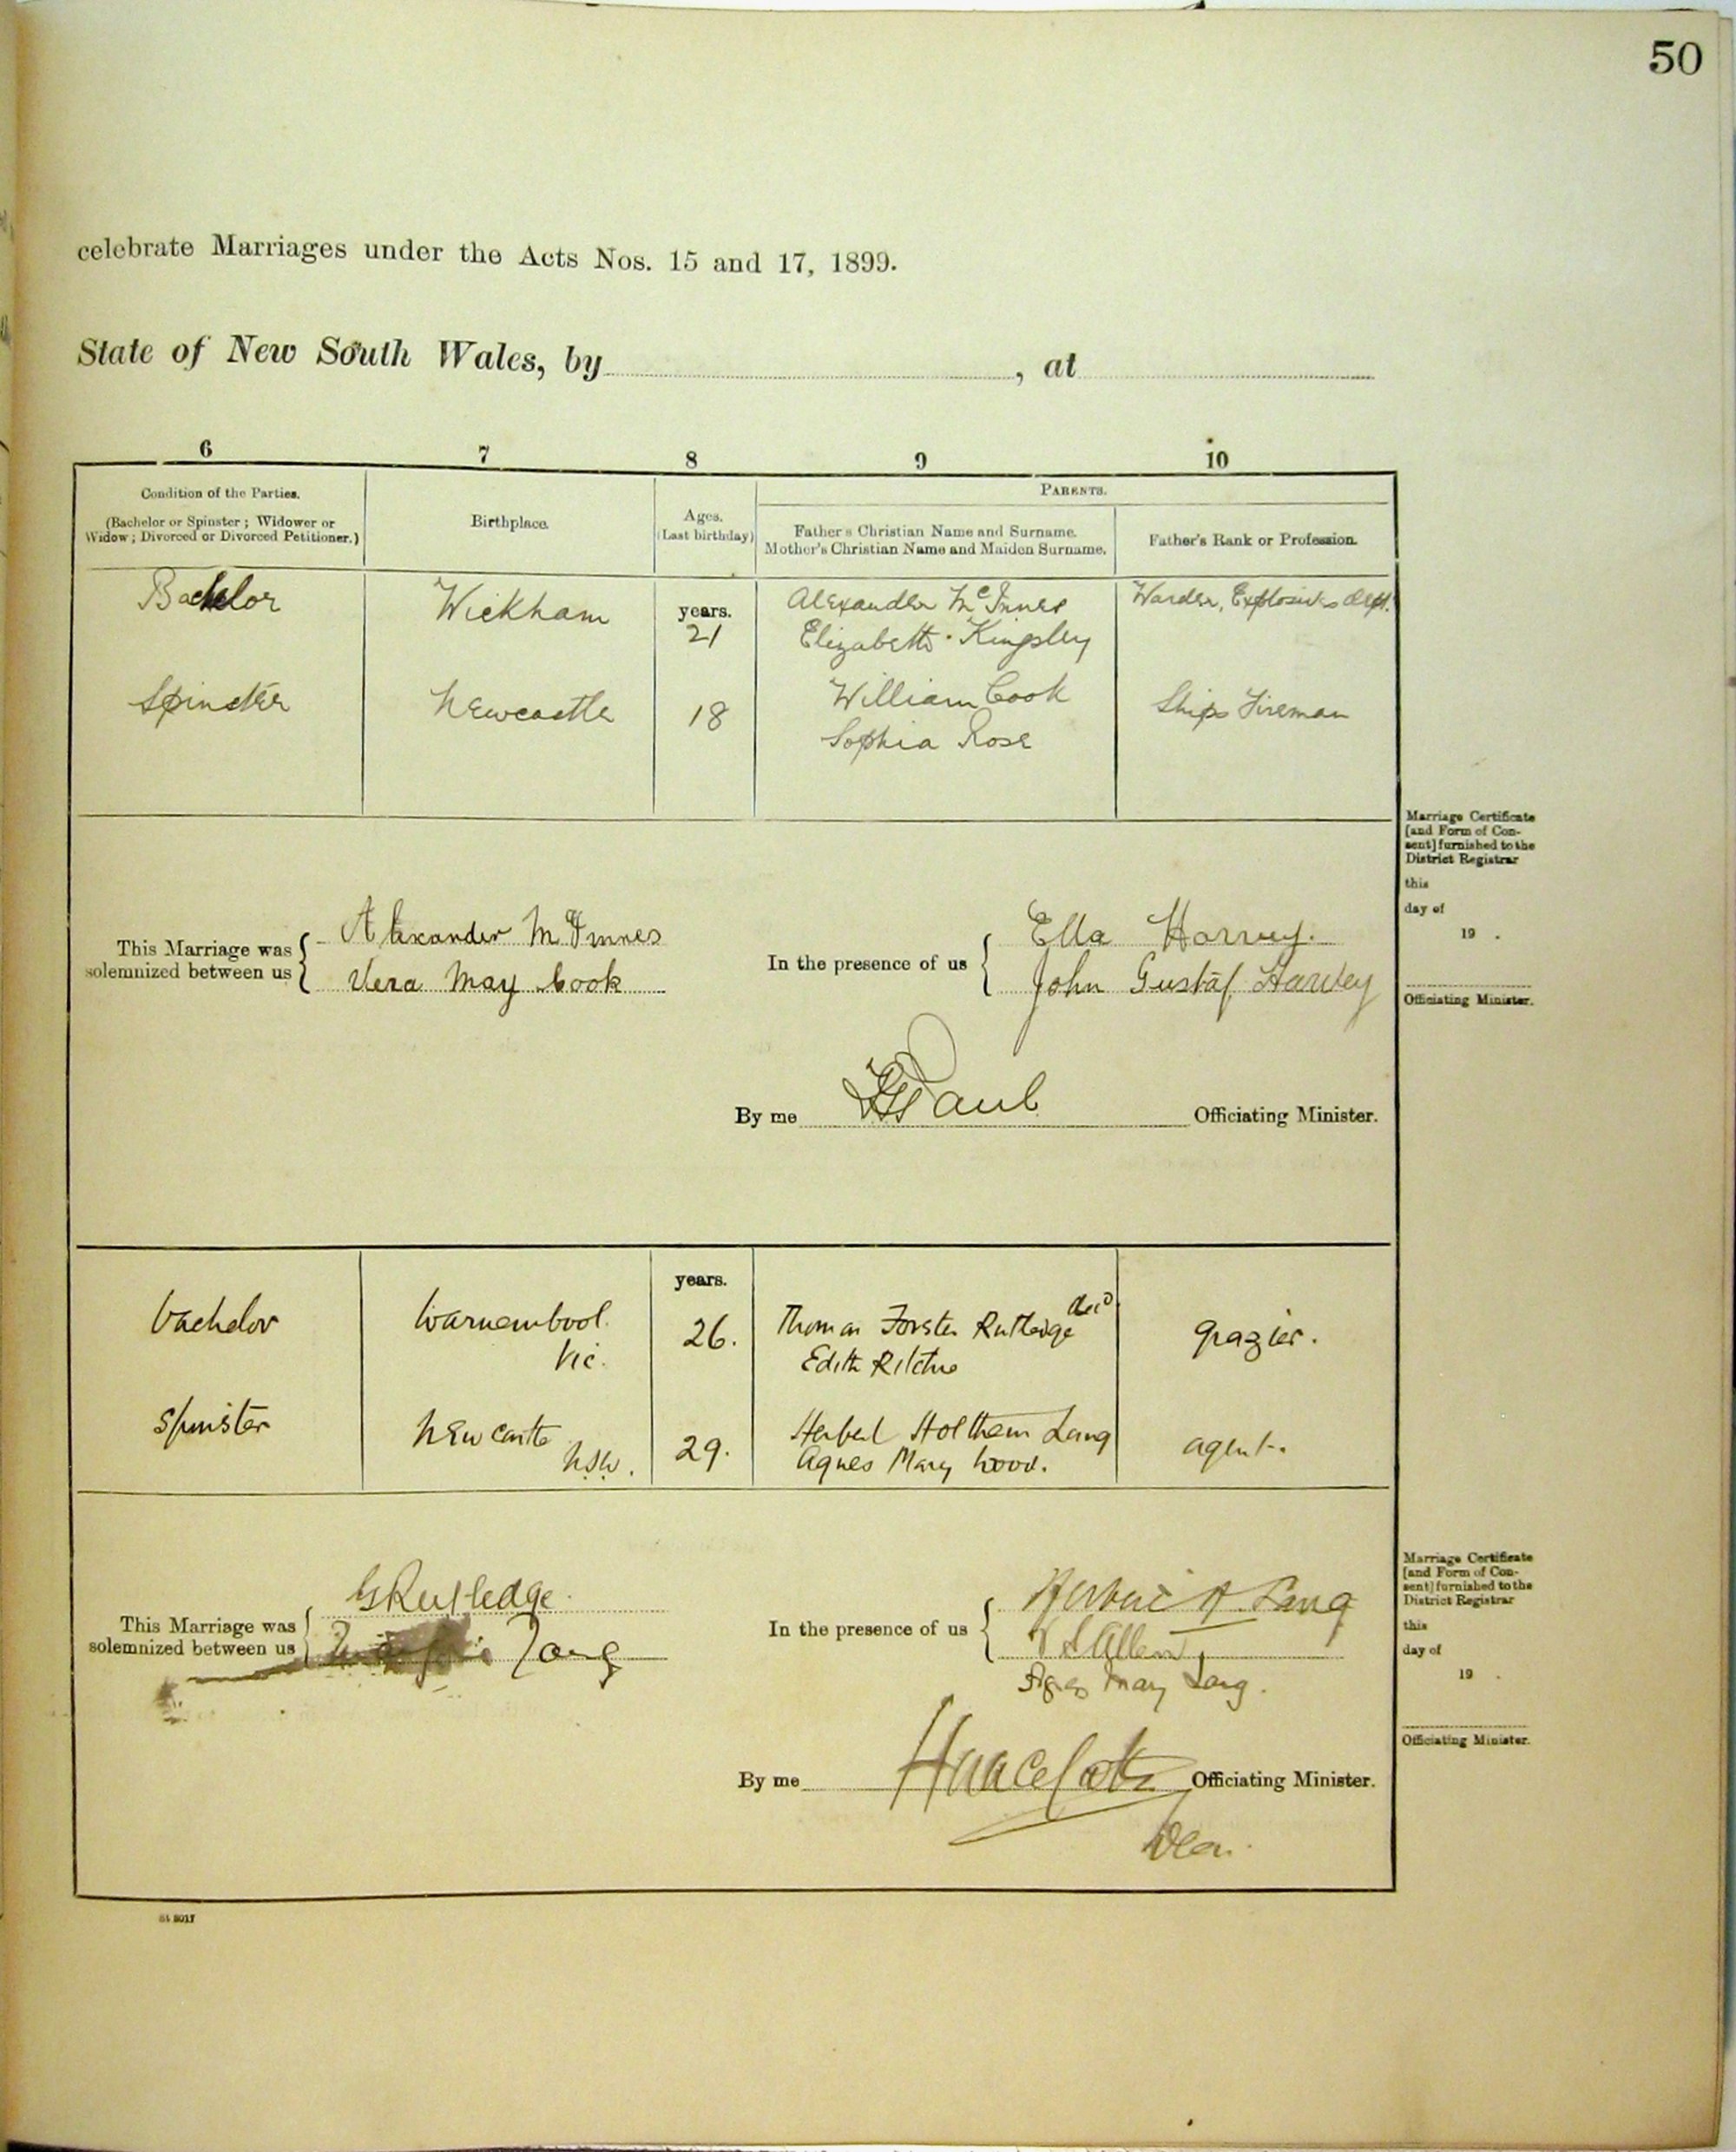 50
celebrate Marriages under the Acts Nos. 15 and 17, 1899.
State of New South Wales, by , at
6 7 8 9 10
Condition of the Parties.
(Bachelor or Spinster; Widower or
Widow; Divorced or Divorced Petitioner.)
Birthplace.
Ages.
(Last birthday)
PARENTS.
Father's Christian Name and Surname.
Mother's Christian Name and Maiden Surname.
Father's Rank or Profession.
Bachelor Wickham years. 21 Alexander McInnes Warder, Explosives Dept.
Elizabeth Kingsley
Spinster Newcastle 18 William Cook Ships Fireman
Sophia Rose
Marriage Certificate
[and Form of Con-
sent] furnished to the
District Registrar
this
day of
19 .
Officiating Minister.
This Marriage was
solemnized between us
Alexander McInnes
Vera May Cook
In the presence of us
Ella Harvey.
John Gustaf Harvey
By me Paul Officiating Minister.
years.
Bachelor Warnambool Vic. 26. Thomas Forster Rutledge decd grazier.
Edith Ritchie
Spinster Newcastle NSW. 29. Herbert Holtham Lang agent.
Agnes Mary Wood.
Marriage Certificate
[and Form of Con-
sent] furnished to the
District Registrar
this
day of
19 .
Officiating Minister.
This Marriage was
solemnized between us
Rutledge
Lang
In the presence of us
Herbert H Lang
Allen
Agnes Mary Lang.
By me Officiating Minister.
Dean.